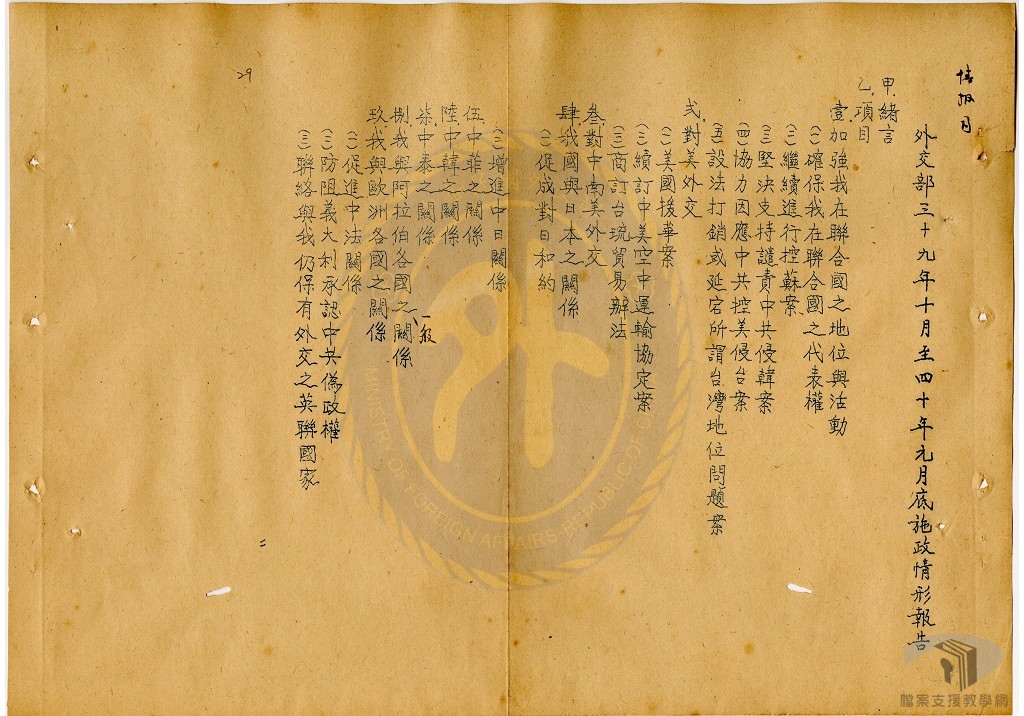 外交部三十九年十月至四十年元月底施政情形報告
甲、緒言
乙、項目
壹加強我在聯合國之地位與活動
(一)確保我在聯合國之代表權
(二)繼續進行控蘇案
(三)堅決支持譴責中共侵韓案
(四)協力因應中共控美侵台案
(五)設法打銷或延宕所謂台灣地位問題案
貳、對美外交
(一)美國援華案
(二)續訂中美空中運輸協定案
(三)商訂台琉貿易辦法
叁對中南美外交
肆我國與日本之關係
(一)促成對日和約
(二)增進中日關係
伍中菲之關係
陸中韓之關係
柒中泰之關係
捌我與阿拉伯各國之一般關係
玖我與歐洲各國之關係
(一)促進中法關係
(二)防阻義大利承認中共偽政權
(三)聯絡與我仍保有外交之英聯國家
29
MINISTRY OF FOREIGN AFFAIRS REPUBLIC OF
檔案支援教學網